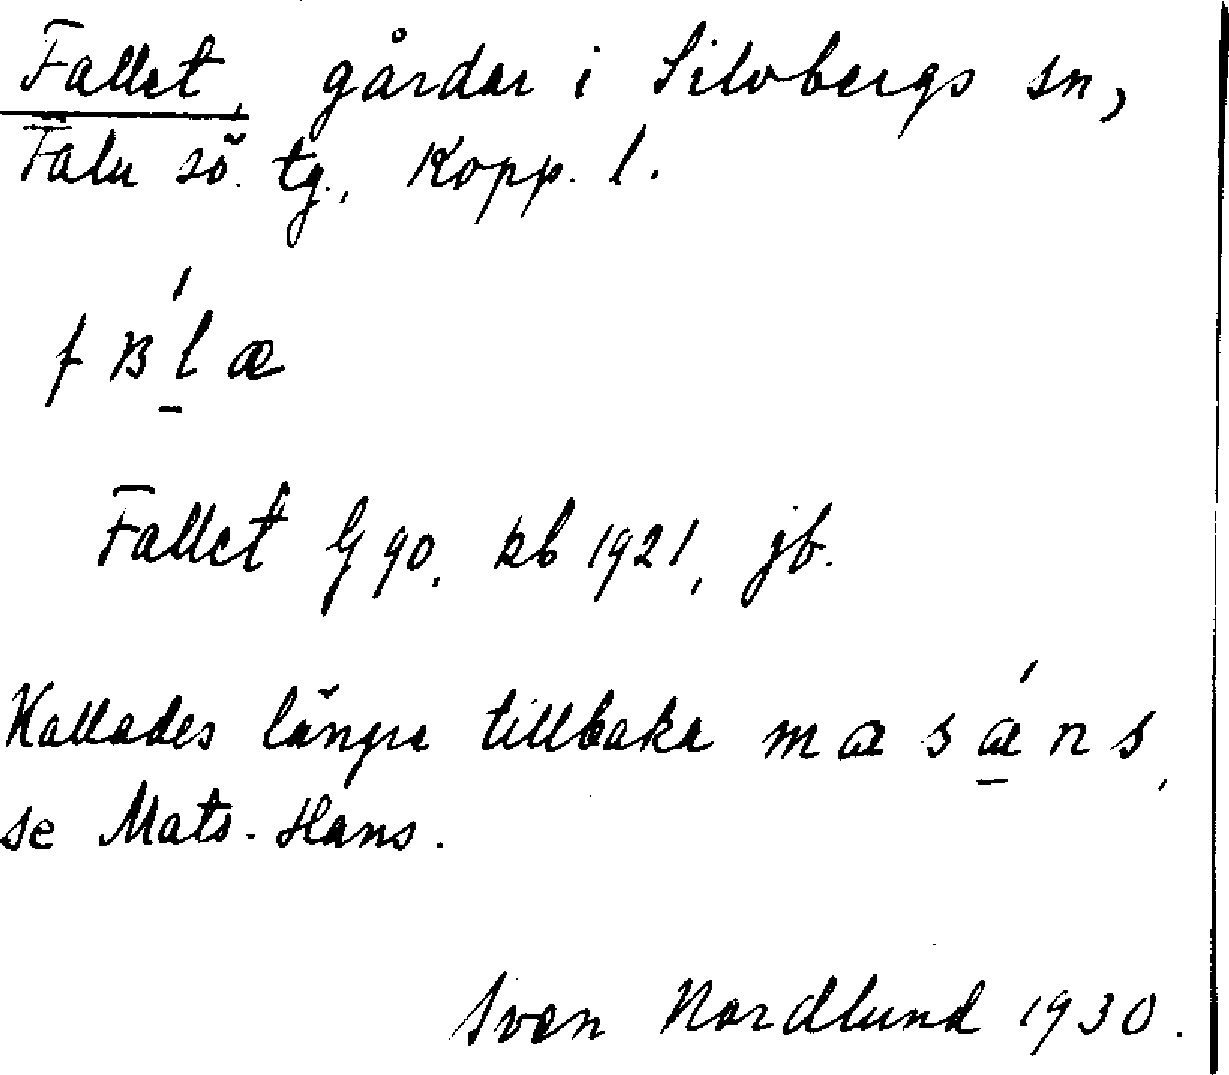 Fallet, gårdar i Silvbergs sn,
Falu sö. tg., Kopp. l.
f ʙ ĺ̲ æ
Fallet G 90, kb 1921, jb.
Kallades längre tillbaka m æ s ǽ̲ n s,
se Mats-Hans.
Sven Nordlund 1930.